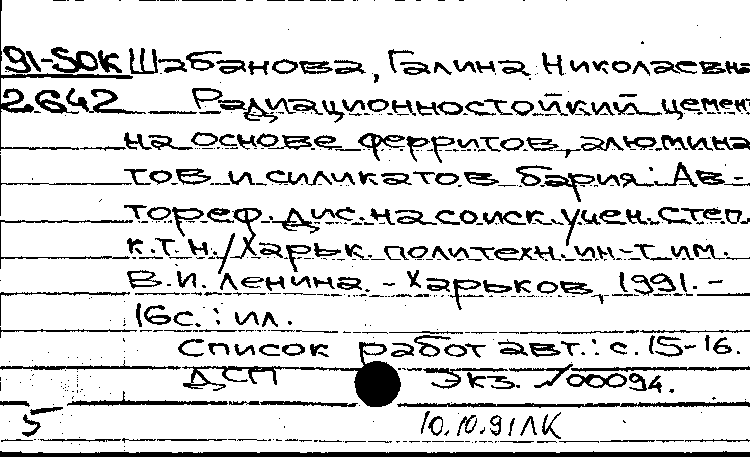 91-SOK Шабанова, Галина Николаевна
2642 Радиационностойкий цемент
на основе ферритов, алюмина
тов и силикатов бария: Ав-
тореф. дис. на соиск. учен. степ.
к.т.н. / Харьк. политехн. ин-т им.
В.И. Ленина. - Харьков, 1991. -
16с. : ил.
Список работ авт.: с.15-16.
ДСП Экз. №00094.
5 10.10.91 ЛК